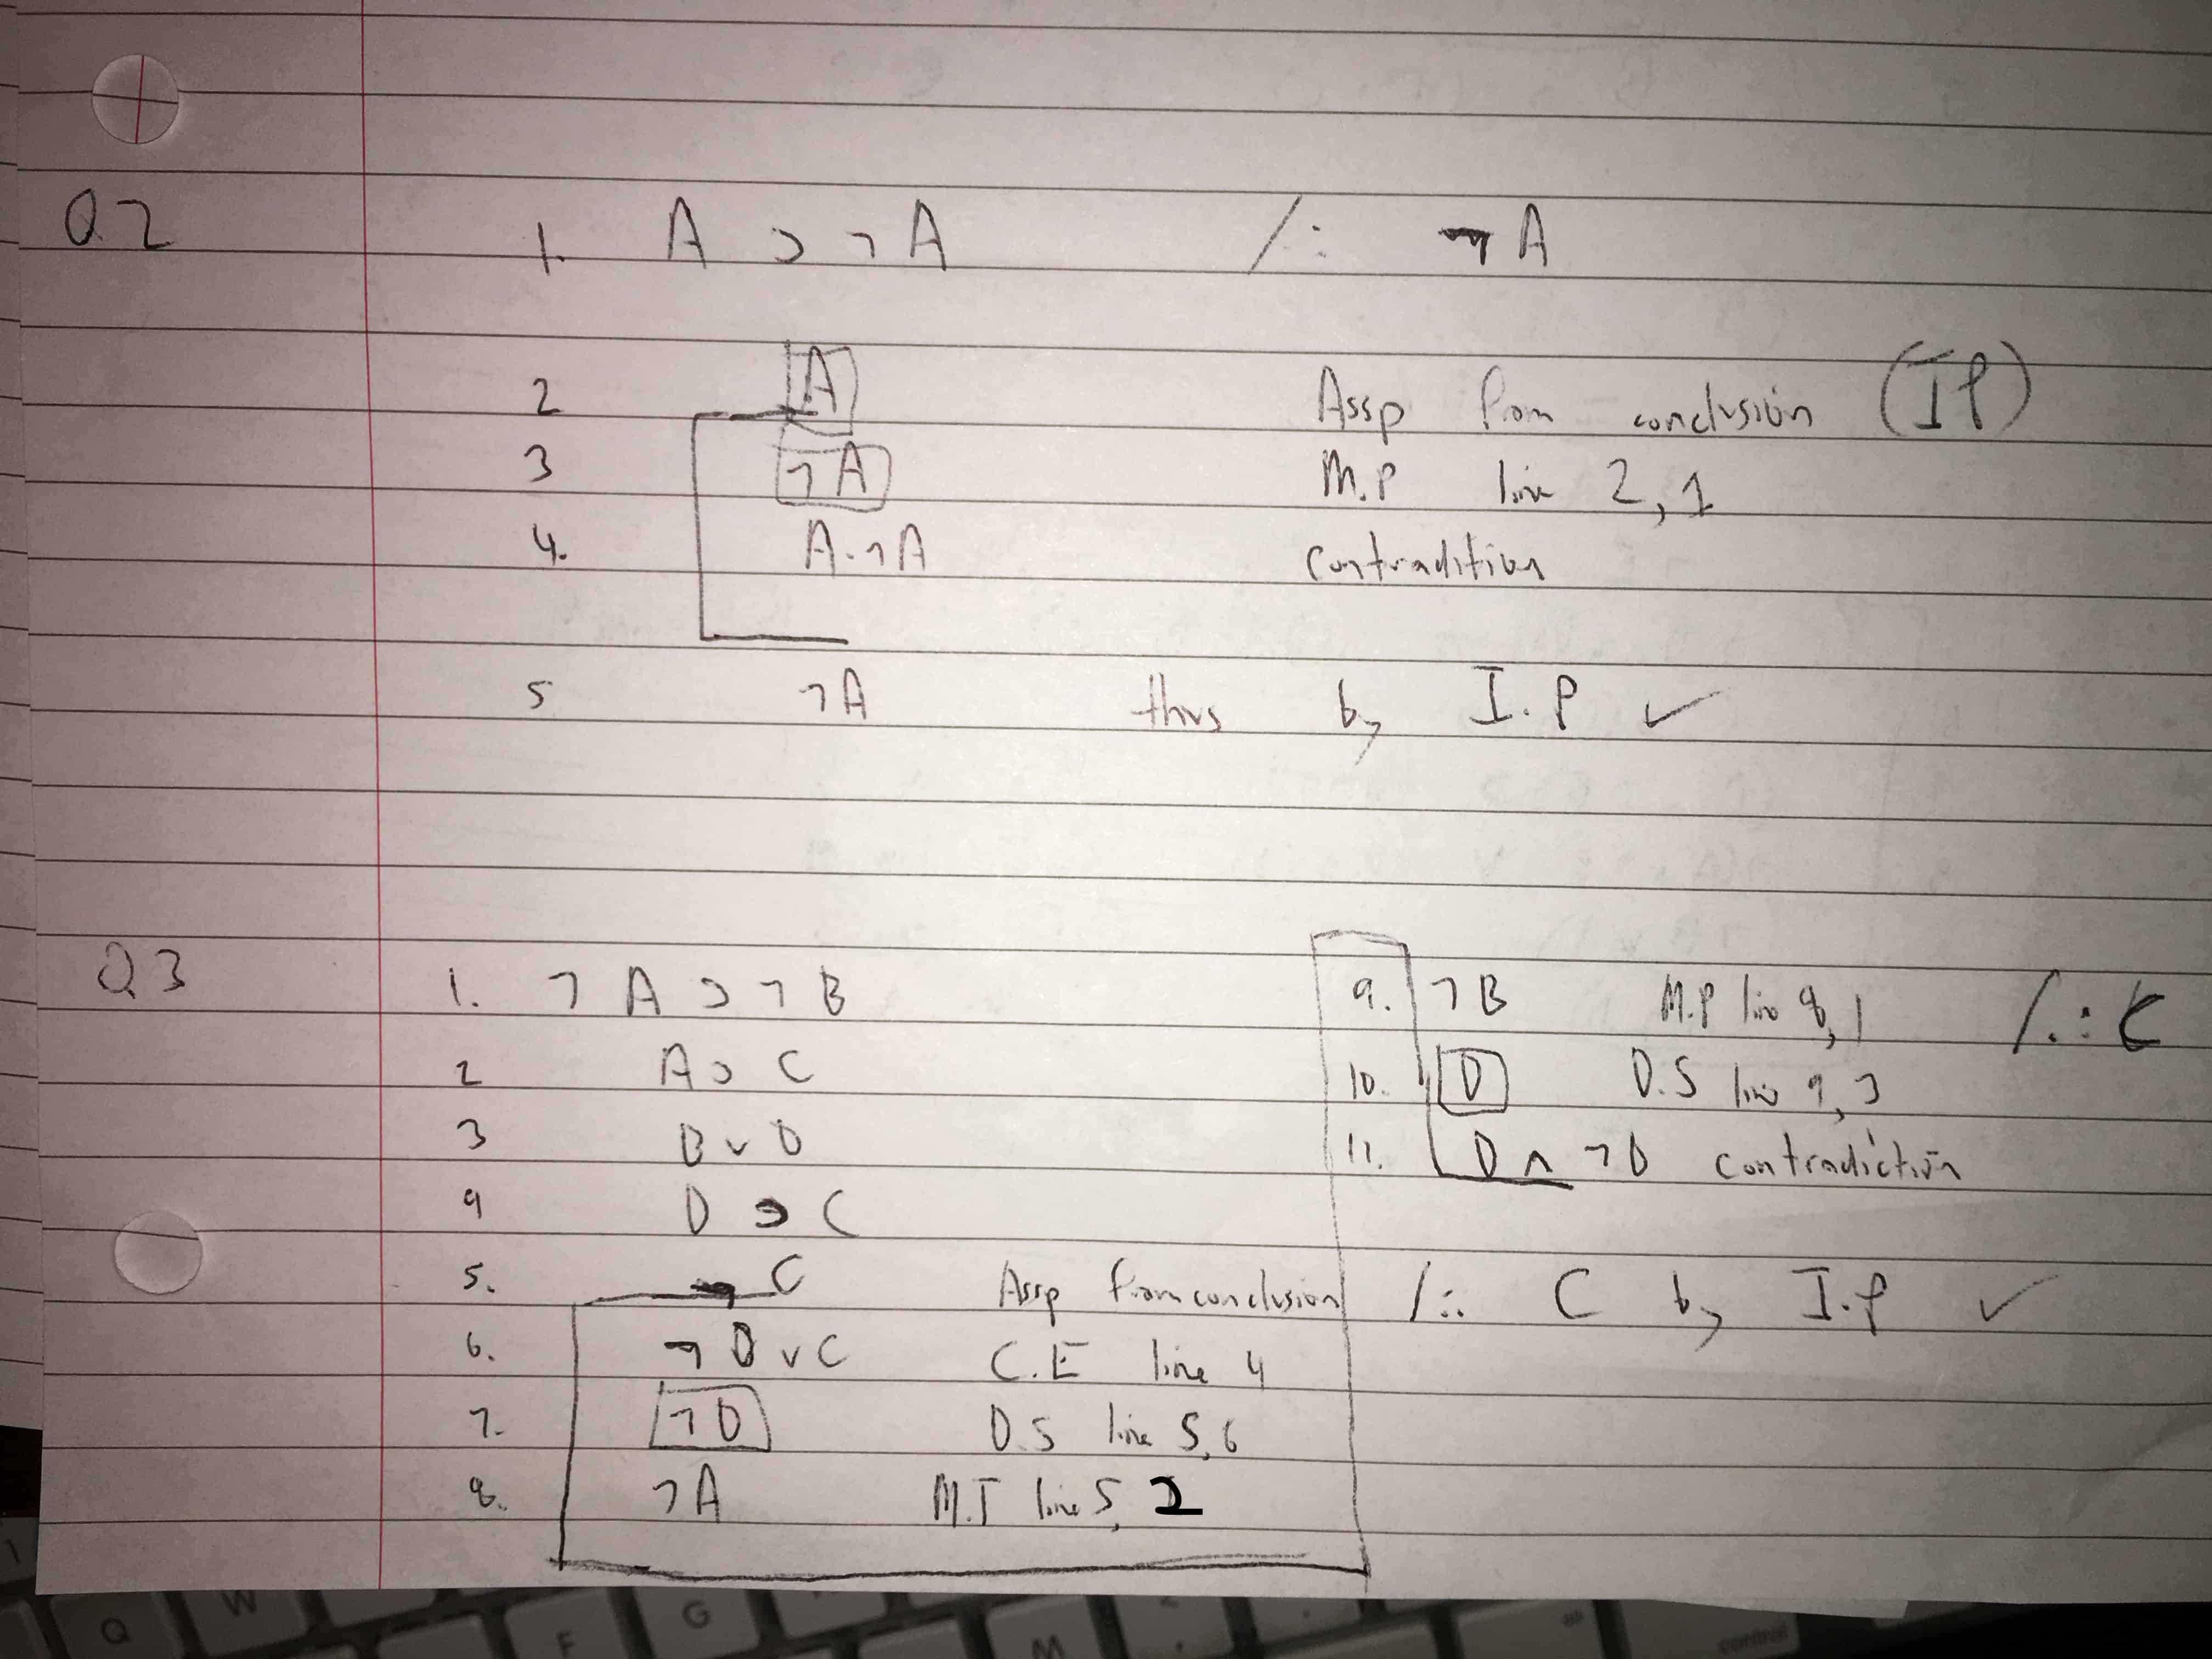 Q2 1. A ⊃ ¬A /∴ ¬A
2 A Assp from conclusion (IP)
3 ¬A M.P line 2,1
4. A·¬A contradition
5 ¬A thus by I.P ✓
Q3 1. ¬A ⊃ ¬B
2 A ⊃ C
3 B v D
4 D ⊃ C
5. ¬C Assp from conclusion
6. ¬D v C C.E line 4
7. ¬D D.S line 5,6
8. ¬A M.T line 5, 2
9. ¬B M.P line 8,1 /∴ C
10. D D.S line 9,3
11. D ∧ ¬D contradiction
/∴ C by I.P ✓
Q W G F M control